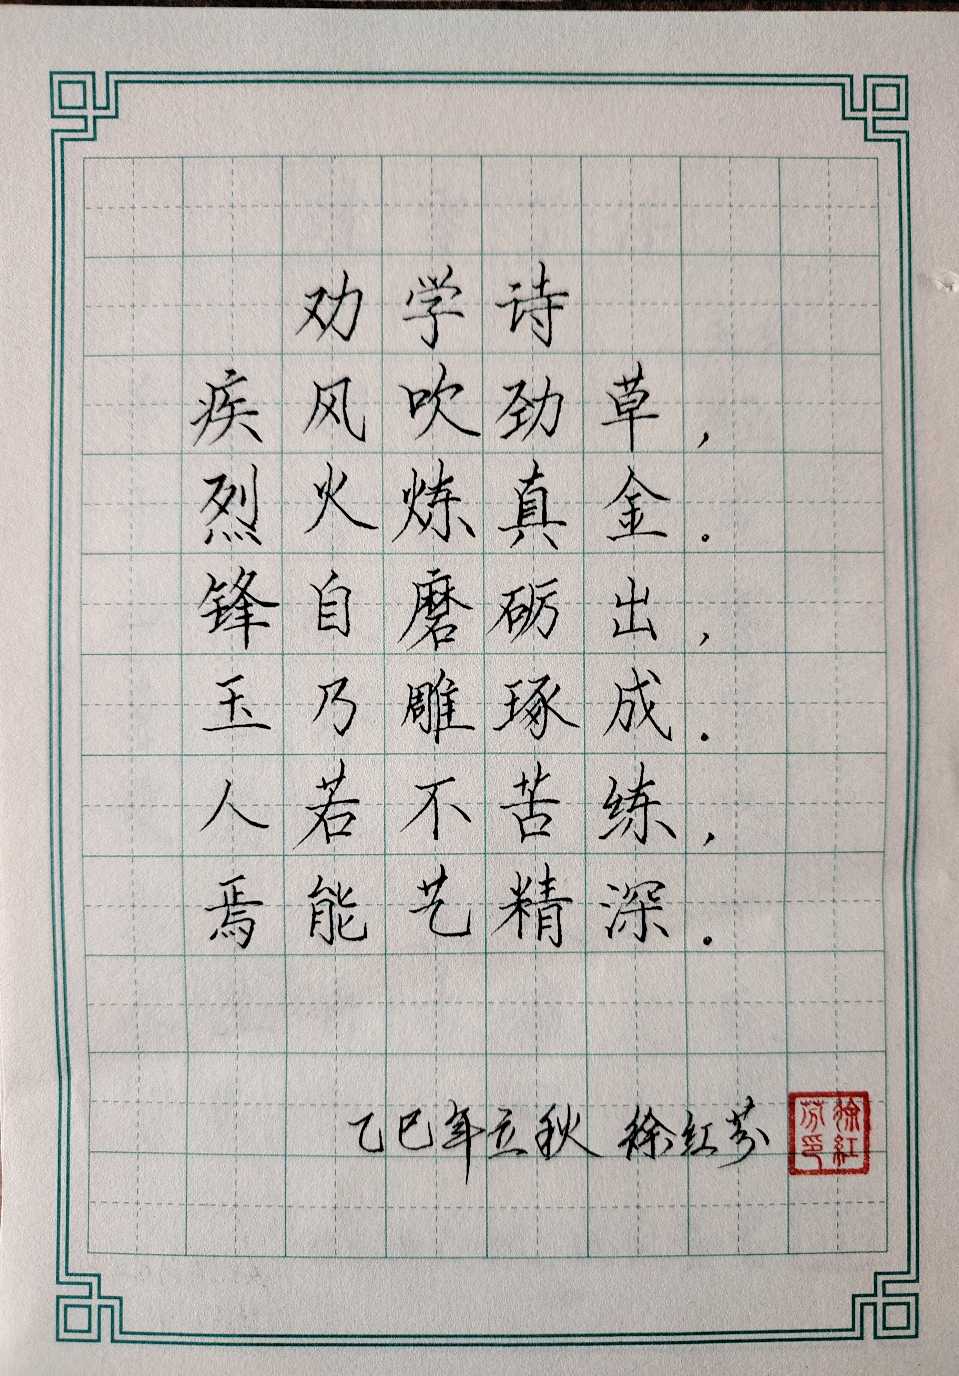 劝学诗
疾风吹劲草，
烈火炼真金.
锋自磨砺出，
玉乃雕琢成.
人若不苦练，
焉能艺精深.
乙巳年立秋 徐红芬
徐紅芬印